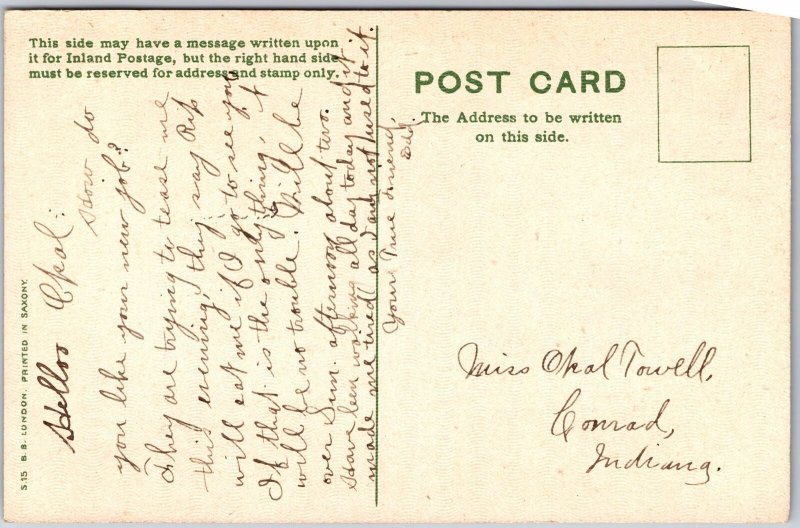 This side may have a message written upon
it for Inland Postage, but the right hand side
must be reserved for address and stamp only.
POST CARD
The Address to be written
on this side.
S.15 B.B. LONDON. PRINTED IN SAXONY.
Helloo Opal:
How do
you like your new job?
They are trying to tease me
this evening, they say Rip
will eat me if I go to see you
If that is the only thing, it
will be no trouble. Will be
over Sun. afternoon about two.
Have been walking all day today and it
made me tired, as I am not used to it.
Your True Friend,
Odd.
Miss Opal Towell,
Conrad,
Indiana.